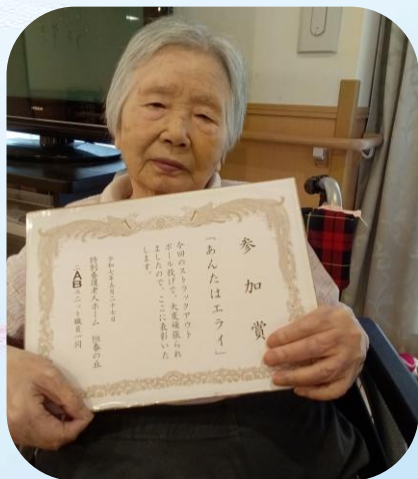 参加賞
「あんたはエライ」
今回のストラックアウト
ボール投げで、大変頑張られ
ましたので、ここに表彰いた
します。
令和七年五月二十七日
特別養護老人ホーム 恒春の丘
ABユニット職員一同